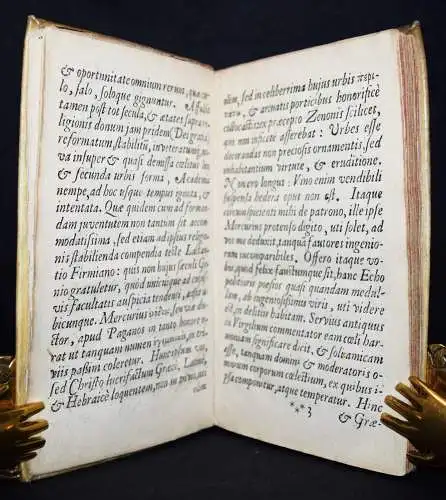 & oportunitate omnium rerum, quæ cæ-
lo, salo, soloque gignuntur. Affulsit
tamen post tot secula, & ætates supra re-
ligionis donum jam pridem (Deo gratia)
reformatum, stabilitū, inveteratum, no-
va insuper & quasi demissa cœlitus lux
& secunda urbis forma, Academia
nempe, ad hoc usque tempus ignota, &
intentata. Quæ quidem cum ad forman-
dam juventutem non tantum sit accom-
modatissima, sed etiam ad ipsius religio-
nis stabilienda compendia teste Lactan-
tio Firmiano: quis non hujus sæculi Ge-
nio gratuletur, quod unicuique ad
vis facultatis auspicia tendenti,
bicunque. Mercurius
ctor, apud Paganos in tanto honore
rat ut tanquam numen
viis passim coleretur. Hunc
sed Christo lucrifactum Græcè, Latinè,
& Hebraicè loquentem, non in
viam
viam, sed in celeberrima hujus urbis περι-
& arcuatis porticibus honorificè
Zenonis scilicet,
qui non inficetè asserebat: Urbes esse
ornandas non preciosis ornamentis, sed
inhabitantium virtute, & eruditione.
Ne vero longus: Vino enim vendibili
suspensa hedera opus non est. Itaque
circumspicienti mihi de patrono, ille ipse
Mercurius protenso digito, uti solet, ad
vos me deduxit, tanquā fautores ingenio-
rum incomparabiles. Offero itaque vo-
bis, quod felix faustumque sit, hanc Echo
politioris philosophiæ quasi quandam medul-
lam, ab eugeniosissimis viris, uti videre
est, in deliciis habitam. Servius antiquus
in Virgilium commentator eam cœli har-
moniam significare dicit, & solivamicam
esse, tanquam domini & moderatoris o-
mnium corporum cœlestium, ex quibus i-
psa componitur, atque temperatur. Hinc
***3
& Græ-